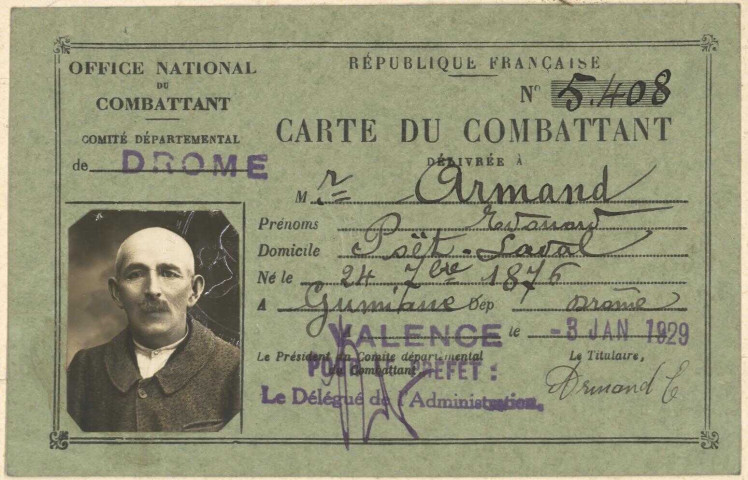 OFFICE NATIONAL
DU
COMBATTANT
COMITÉ DÉPARTEMENTAL
de DROME
RÉPUBLIQUE FRANÇAISE
N° 5.408
CARTE DU COMBATTANT
DÉLIVRÉE À
M r Armand
Prénoms Edouard
Domicile Poët-Laval
Né le 24 7bre 1876
A Gumiane Dep Drôme
VALENCE le -3 JAN 1929
Le Président du Comité départemental
du Combattant
POUR LE PREFET :
Le Délégué de l'Administration.
Le Titulaire,
Armand E